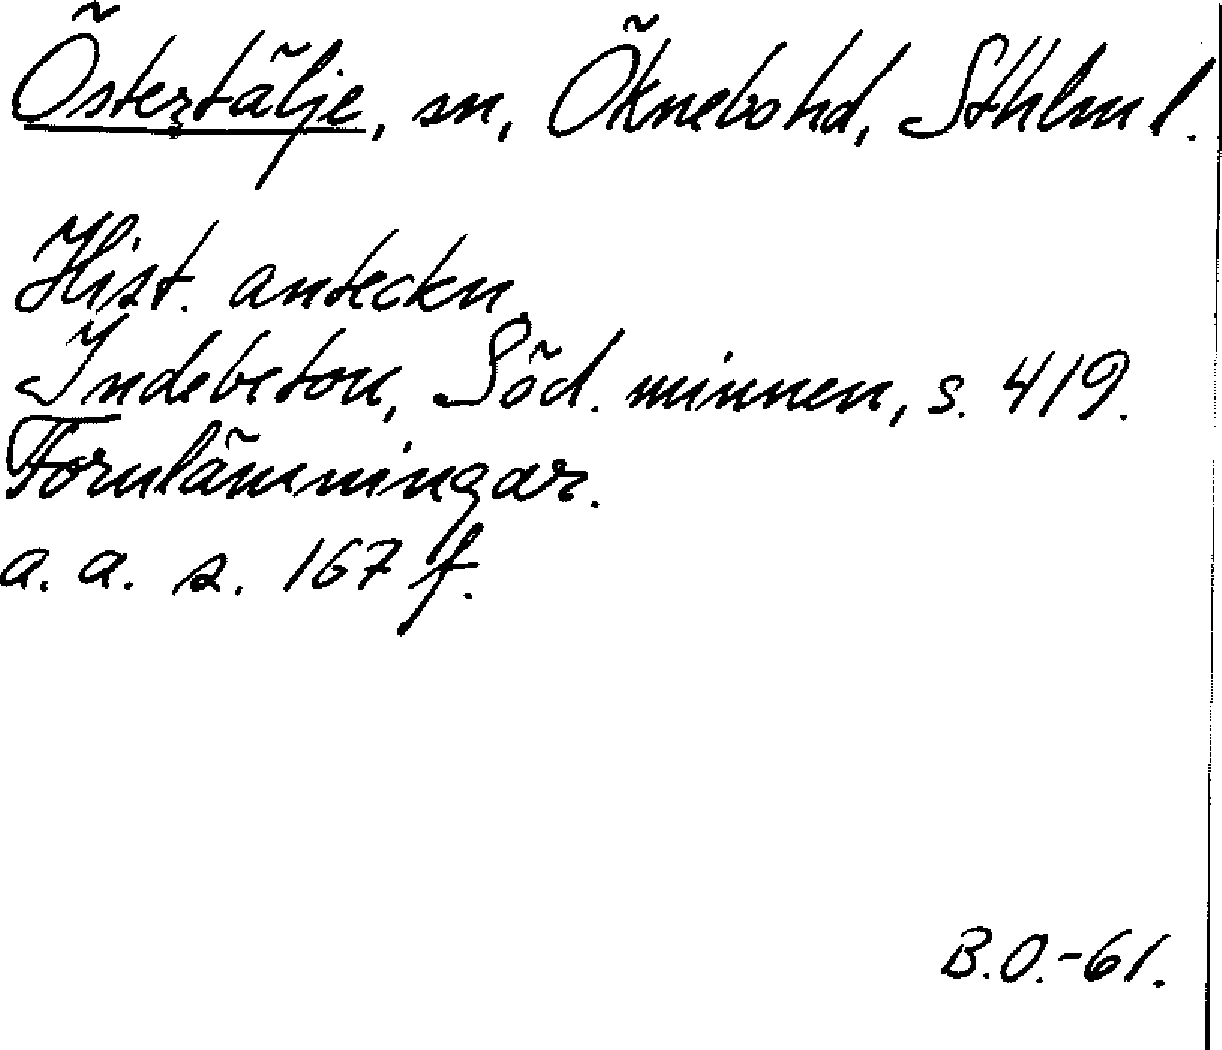 Östertälje, sn, Öknebo hd, Sthlm l.
Hist. anteckn.
Indebetou, Söd. minnen, s. 419.
Fornlämningar.
a. a. s. 167 f.
B.O.-61.